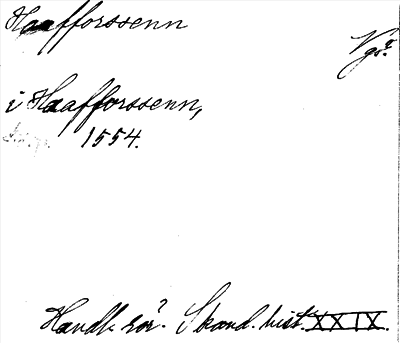 Haafforssenn
Vgö?
i Haafforssenn,
1554.
Handl. rör? Skand. hist. XXIX.